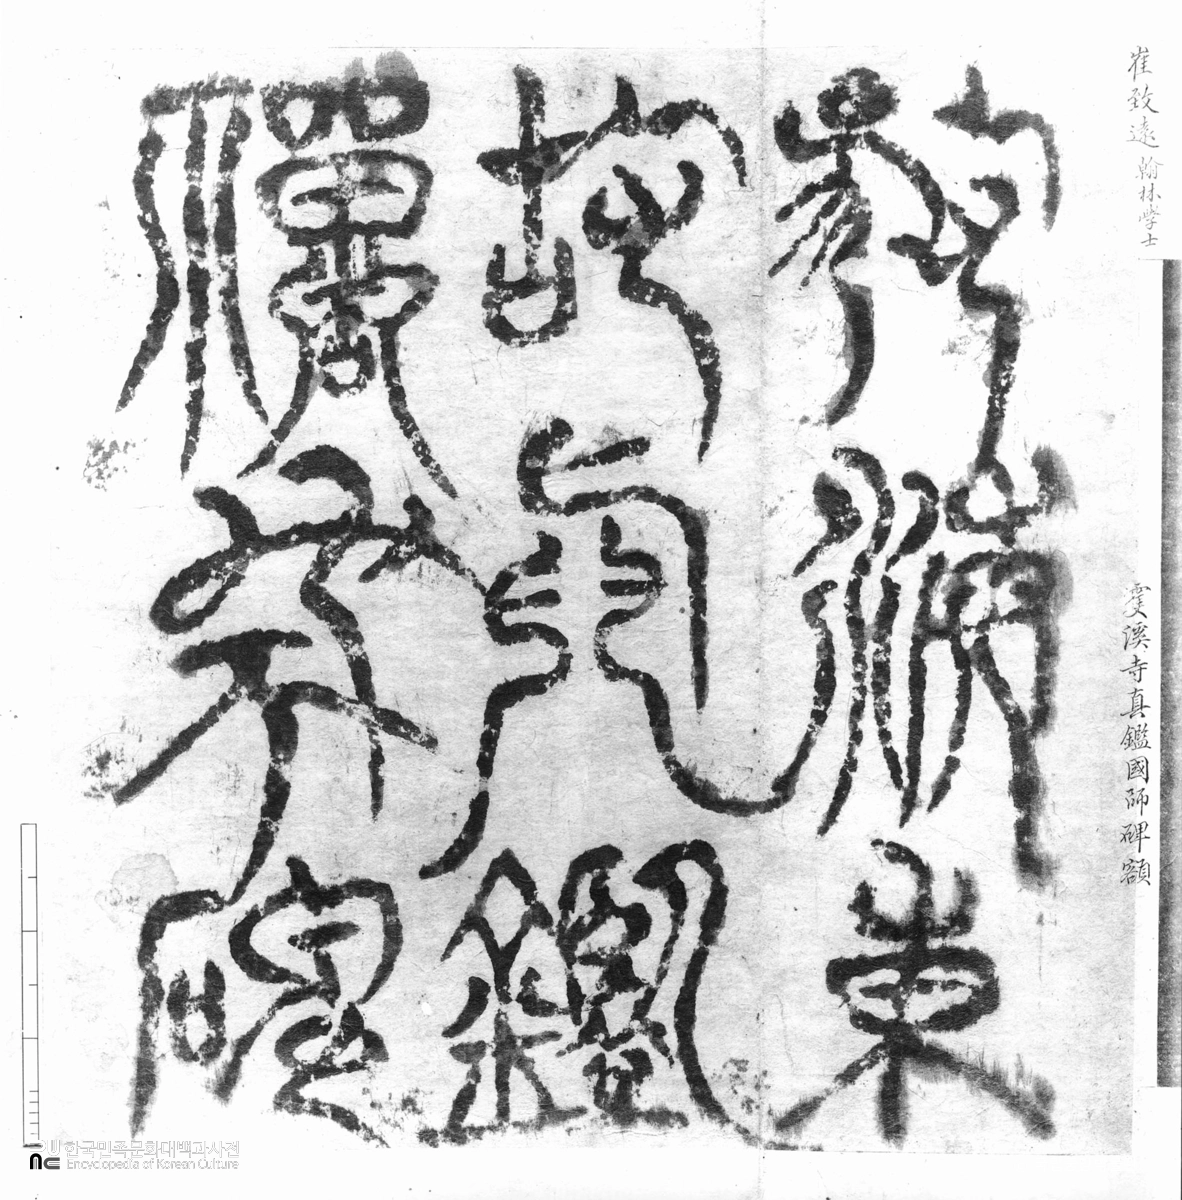 崔致遠 翰林學士
雙溪寺真鑑國師碑額
海東
故眞鑑
禪師碑
한국민족문화대백과사전
Encyclopedia of Korean Culture